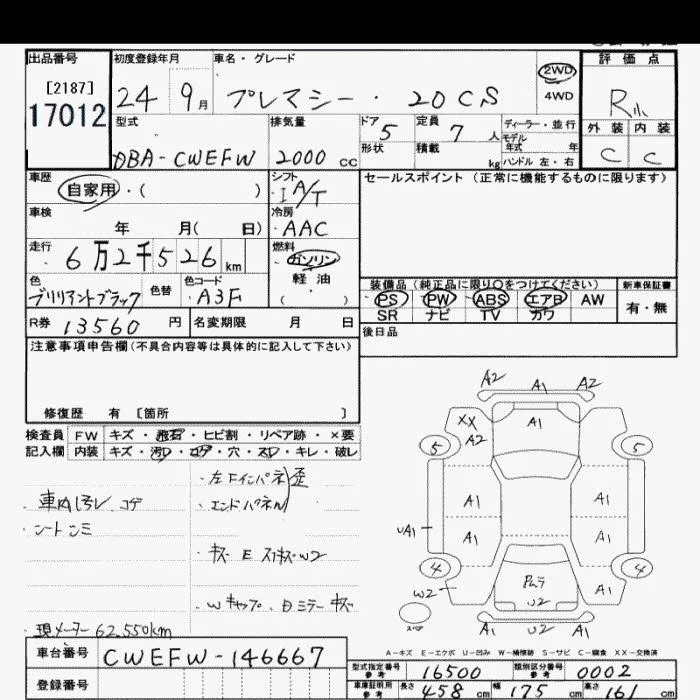 出品番号 初度登録年月 車名・グレード 2WD 4WD 評価点
[2187]
17012
24 9月 プレマシー・20CS R
型式 排気量 ドア 定員 ディーラー・並行
DBA-CWEFW 2000 cc 5 7人 モデル年式 年
形状 積載 kg ハンドル 左・右
外装 内装
C C
車歴 自家用・( ) シフト IA/T
セールスポイント (正常に機能するものに限ります)
車検 年 月( 日) 冷房 AAC
走行 6万2千526km 燃料 ガソリン 軽油 ( )
色 ブリリアントブラック 色替 色コード A3F
装備品 (純正品に限り○をつけてください) 新車保証書
PS PW ABS エアB AW 有・無
SR ナビ TV カワ
R券 13560円 名変期限 月 日
後日品
注意事項申告欄(不具合内容等は具体的に記入して下さい)
修復歴 有 [箇所 ]
検査員 FW キズ・飛石・ヒビ割・リペア跡・×要
記入欄 内装 キズ・汚レ・コゲ・穴・スレ・キレ・破レ
・左Fインパネ歪
・エンドパネル
・車内汚レ コゲ
・シートシミ
・キズ E スリキズ W2
・Wキャップ、Bミラーキズ
・現メーター 62,550km
A2 A1 A2
XX A2 A1
5 5
A1 A1
UA1 A1 A1
4 4
W2 U2 A1
A1 U2 A1
A-キズ E-エクボ U-凹み W-補修跡 S-サビ C-腐食 XX-交換済
車台番号 CWEFW-146667
登録番号
型式指定番号 参考 16500 類別区分番号 参考 0002
車庫証明用 参考 長さ 458cm 幅 175cm 高さ 161cm